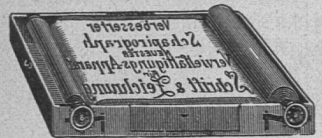 Verbesserter
Schapirograph
NEUESTER
Vervielfältigungs-Apparat
für
Schrift & Zeichnung